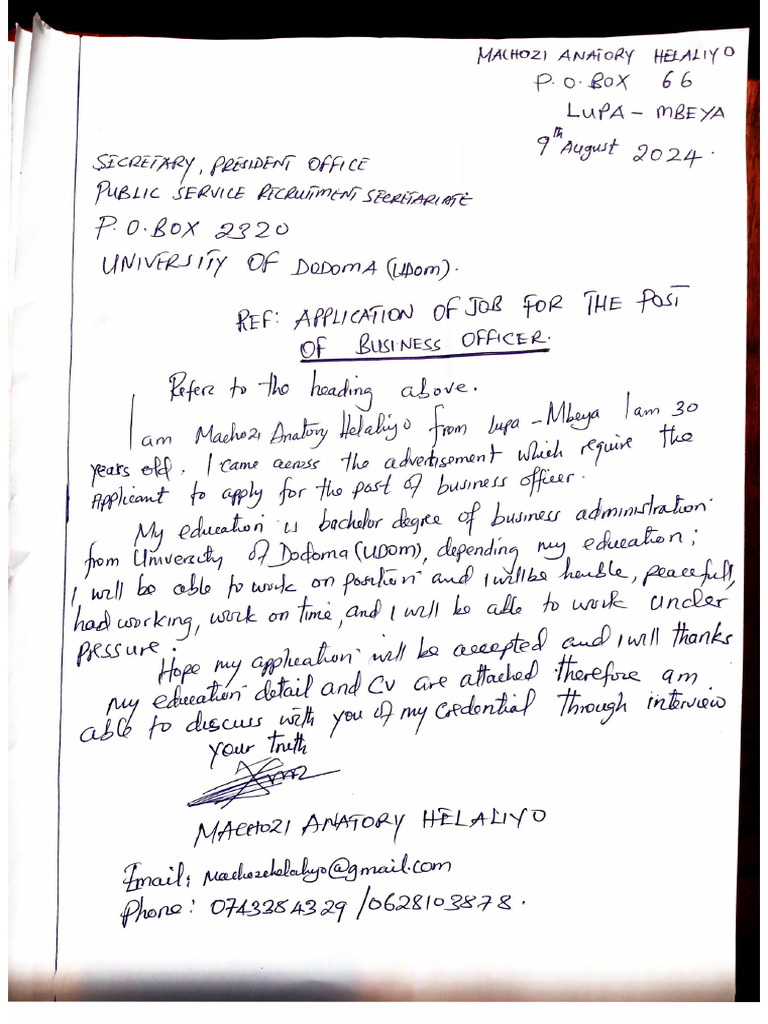 MACHOZI ANATORY HELALIYO
P.O.BOX 66
LUPA - MBEYA
9th August 2024.
SECRETARY, PRESIDENT OFFICE
PUBLIC SERVICE RECRUITMENT SECRETARIATE
P.O.BOX 2320
UNIVERSITY OF DODOMA (UDOM).
REF: APPLICATION OF JOB FOR THE POST
OF BUSINESS OFFICER.
Refers to the heading above.
I am Machozi Anatory Helaliyo from lupa - Mbeya I am 30
years old. I came across the advertisement which require the
Applicant to apply for the post of business officer.
My education is bachelor degree of business administration
from University of Dodoma (UDOM), depending my education;
I will be able to work on position and I will be humble, peacefull,
had working, work on time, and I will be able to work under
pressure.
Hope my application will be accepted and I will thanks
my education detail and CV are attached therefore am
able to discuss with you of my credential through interview
your truth
MACHOZI ANATORY HELALIYO
Email: machozehelaliyo@gmail.com
Phone: 0743384329 /0628103878.